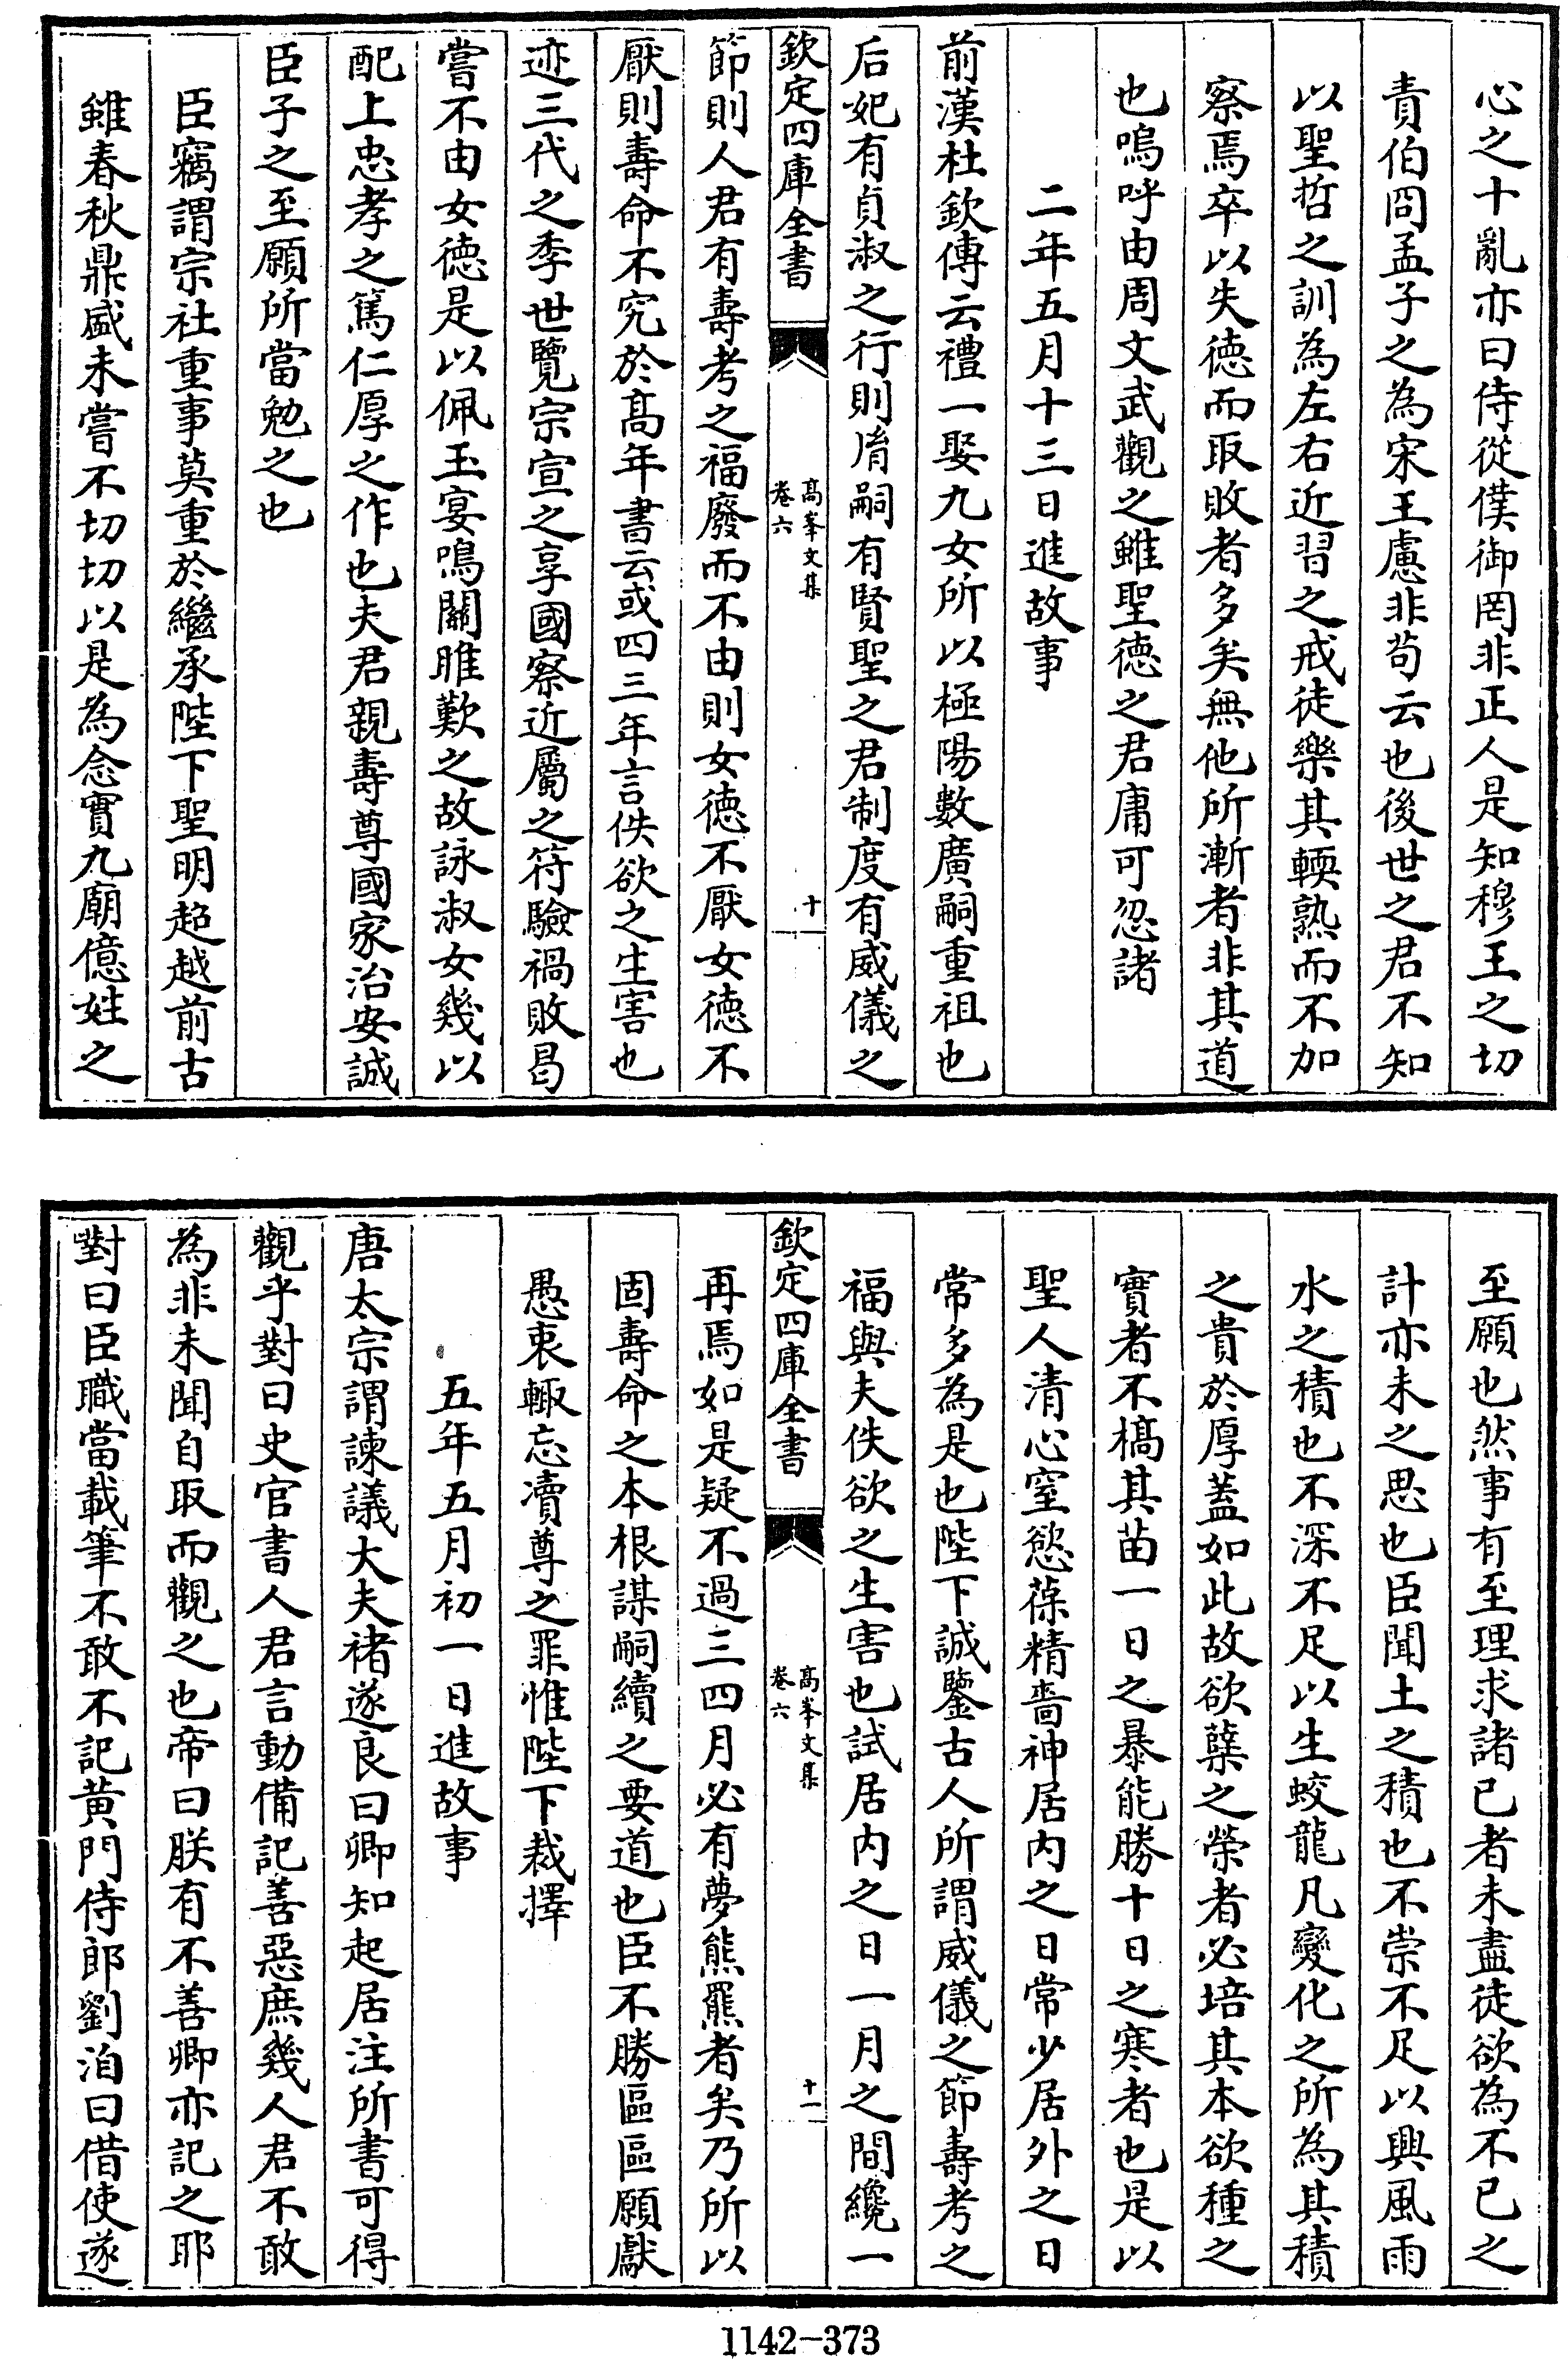 心之十亂亦曰侍從僕御罔非正人是知穆王之切
責伯冏孟子之為宋王慮非茍云也後世之君不知
以聖哲之訓為左右近習之戒徒樂其輭熟而不加
察焉卒以失徳而取敗者多矣無他所漸者非其道
也嗚呼由周文武觀之雖聖徳之君庸可忽諸
二年五月十三日進故事
前漢杜欽傳云禮一娶九女所以極陽數廣嗣重祖也
后妃有貞淑之行則胤嗣有賢聖之君制度有威儀之
欽定四庫全書
髙峯文集
卷六
十
節則人君有壽考之福廢而不由則女徳不厭女徳不
厭則壽命不究於髙年書云或四三年言佚欲之生害也
迹三代之季世覽宗宣之享國察近屬之符驗禍敗曷
嘗不由女徳是以佩玉宴鳴關雎歎之故詠淑女幾以
配上忠孝之篤仁厚之作也夫君親壽尊國家治安誠
臣子之至願所當勉之也
臣竊謂宗社重事莫重於繼承陛下聖明超越前古
雖春秋鼎盛未嘗不切切以是為念實九廟億姓之
至願也然事有至理求諸已者未盡徒欲為不已之
計亦未之思也臣聞土之積也不崇不足以興風雨
水之積也不深不足以生蛟龍凡變化之所為其積
之貴於厚蓋如此故欲蘖之榮者必培其本欲種之
實者不槁其苗一日之暴能勝十日之寒者也是以
聖人清心窒慾葆精嗇神居内之日常少居外之日
常多為是也陛下誠鑒古人所謂威儀之節壽考之
福與夫佚欲之生害也試居内之日一月之間纔一
欽定四庫全書
髙峯文集
卷六
十一
再焉如是疑不過三四月必有夢熊羆者矣乃所以
固壽命之本根謀嗣續之要道也臣不勝區區願獻
愚衷輙忘瀆尊之罪惟陛下裁擇
五年五月初一日進故事
唐太宗謂諫議大夫禇遂良曰卿知起居注所書可得
觀乎對曰史官書人君言動備記善惡庶幾人君不敢
為非未聞自取而觀之也帝曰朕有不善卿亦記之耶
對曰臣職當載筆不敢不記黄門侍郎劉洎曰借使遂
1142-373